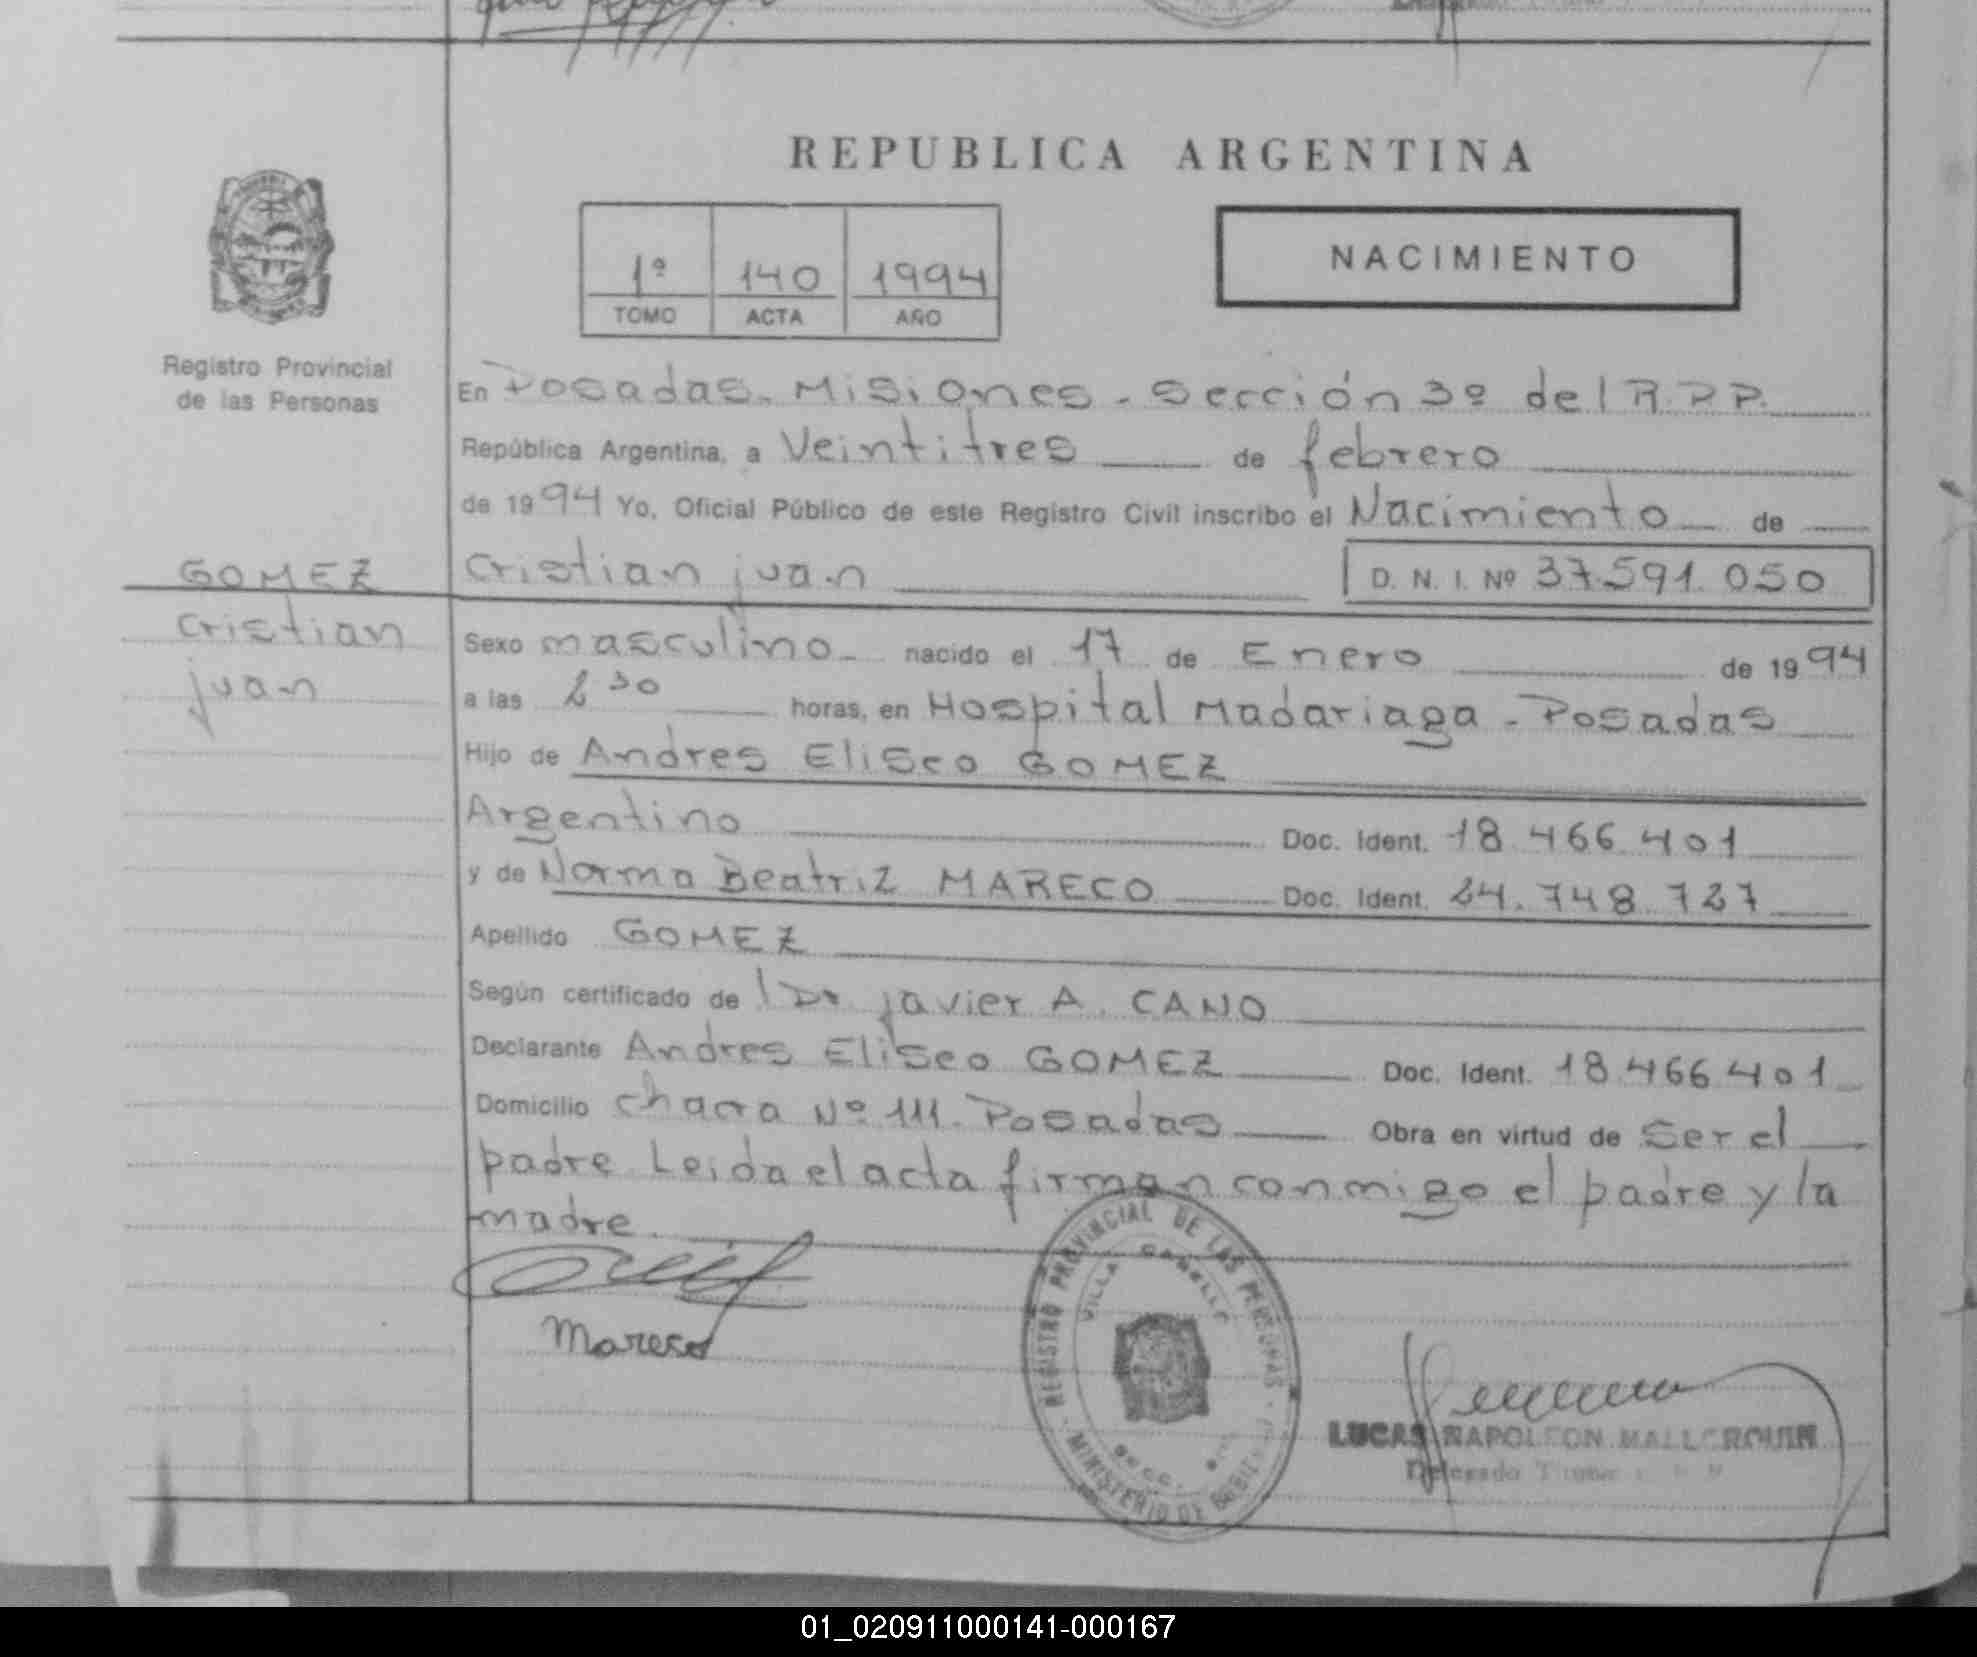 REPUBLICA ARGENTINA
1º 140 1994
TOMO ACTA AÑO
NACIMIENTO
Registro Provincial
de las Personas
En Posadas. Misiones. Sección 3º del R.P.P.
República Argentina, a Veintitres de febrero
de 1994 Yo, Oficial Público de este Registro Civil inscribo el Nacimiento de
Cristian juan D. N. I. Nº 37.591.050
GOMEZ
Cristian
juan
Sexo masculino nacido el 17 de Enero de 1994
a las 2 30 horas, en Hospital Madariaga - Posadas
Hijo de Andres Eliseo GOMEZ
Argentino Doc. Ident. 18.466.401
y de Norma Beatriz MARECO Doc. Ident. 24.748.727
Apellido GOMEZ
Según certificado de l Dr javier A. CANO
Declarante Andres Eliseo GOMEZ Doc. Ident. 18.466.401
Domicilio chacra Nº 111. Posadas Obra en virtud de Ser el
padre. Leida el acta firman conmigo el padre y la
madre
Mareco
REGISTRO PROVINCIAL DE LAS PERSONAS
VILLA CABELLO
SECC.
MINISTERIO DE
LUCAS NAPOLEON MALLORQUIN
Delegado Titular
01_020911000141-000167